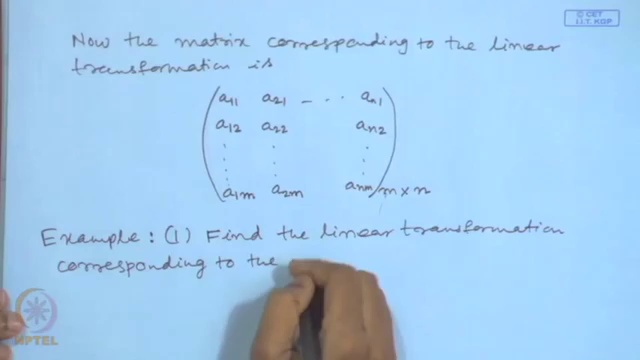 © CET
I.I.T. KGP
Now the matrix corresponding to the linear
transformation is
a11 a21 - ... an1
a12 a22 an2
⋮ ⋮ ⋮
a1m a2m anm m×n
Example: (1) Find the linear transformation
corresponding to the
NPTEL